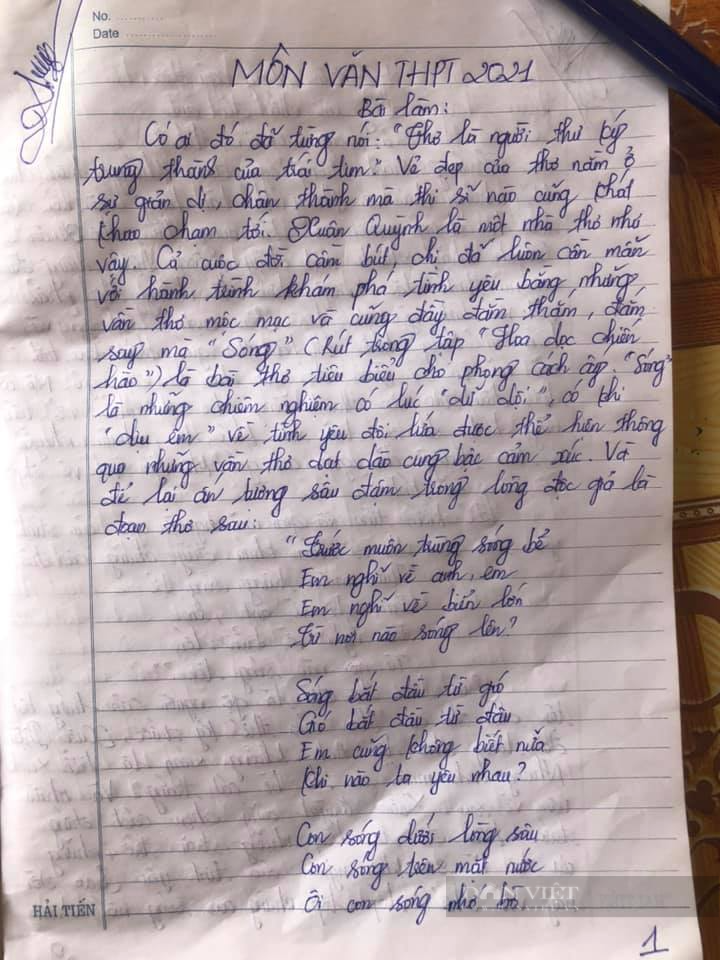 No. ............
Date ........................
MÔN VĂN THPT 2021
Bài làm:
Có ai đó đã từng nói: "Thơ là người thư ký
trung thành của trái tim." Vẻ đẹp của thơ nằm ở
sự giản dị, chân thành mà thi sĩ nào cũng khát
khao chạm tới. Xuân Quỳnh là một nhà thơ như
vậy. Cả cuộc đời cầm bút, chị đã luôn cần mẫn
với hành trình khám phá tình yêu bằng những
vần thơ mộc mạc và cũng đầy đằm thắm, đắm
say mà "Sóng" (Rút trong tập "Hoa dọc chiến
hào") là bài thơ tiêu biểu cho phong cách ấy. "Sóng"
là những chiêm nghiệm có lúc "dữ dội", có khi
"dịu êm" về tình yêu đôi lứa được thể hiện thông
qua những vần thơ dạt dào cung bậc cảm xúc. Và
để lại ấn tượng sâu đậm trong lòng độc giả là
đoạn thơ sau:
"Trước muôn trùng sóng bể
Em nghĩ về anh, em
Em nghĩ về biển lớn
Từ nơi nào sóng lên?
Sóng bắt đầu từ gió
Gió bắt đầu từ đâu
Em cũng không biết nữa
Khi nào ta yêu nhau?
Con sóng dưới lòng sâu
Con sóng trên mặt nước
Ôi con sóng nhớ bờ
HẢI TIẾN
1